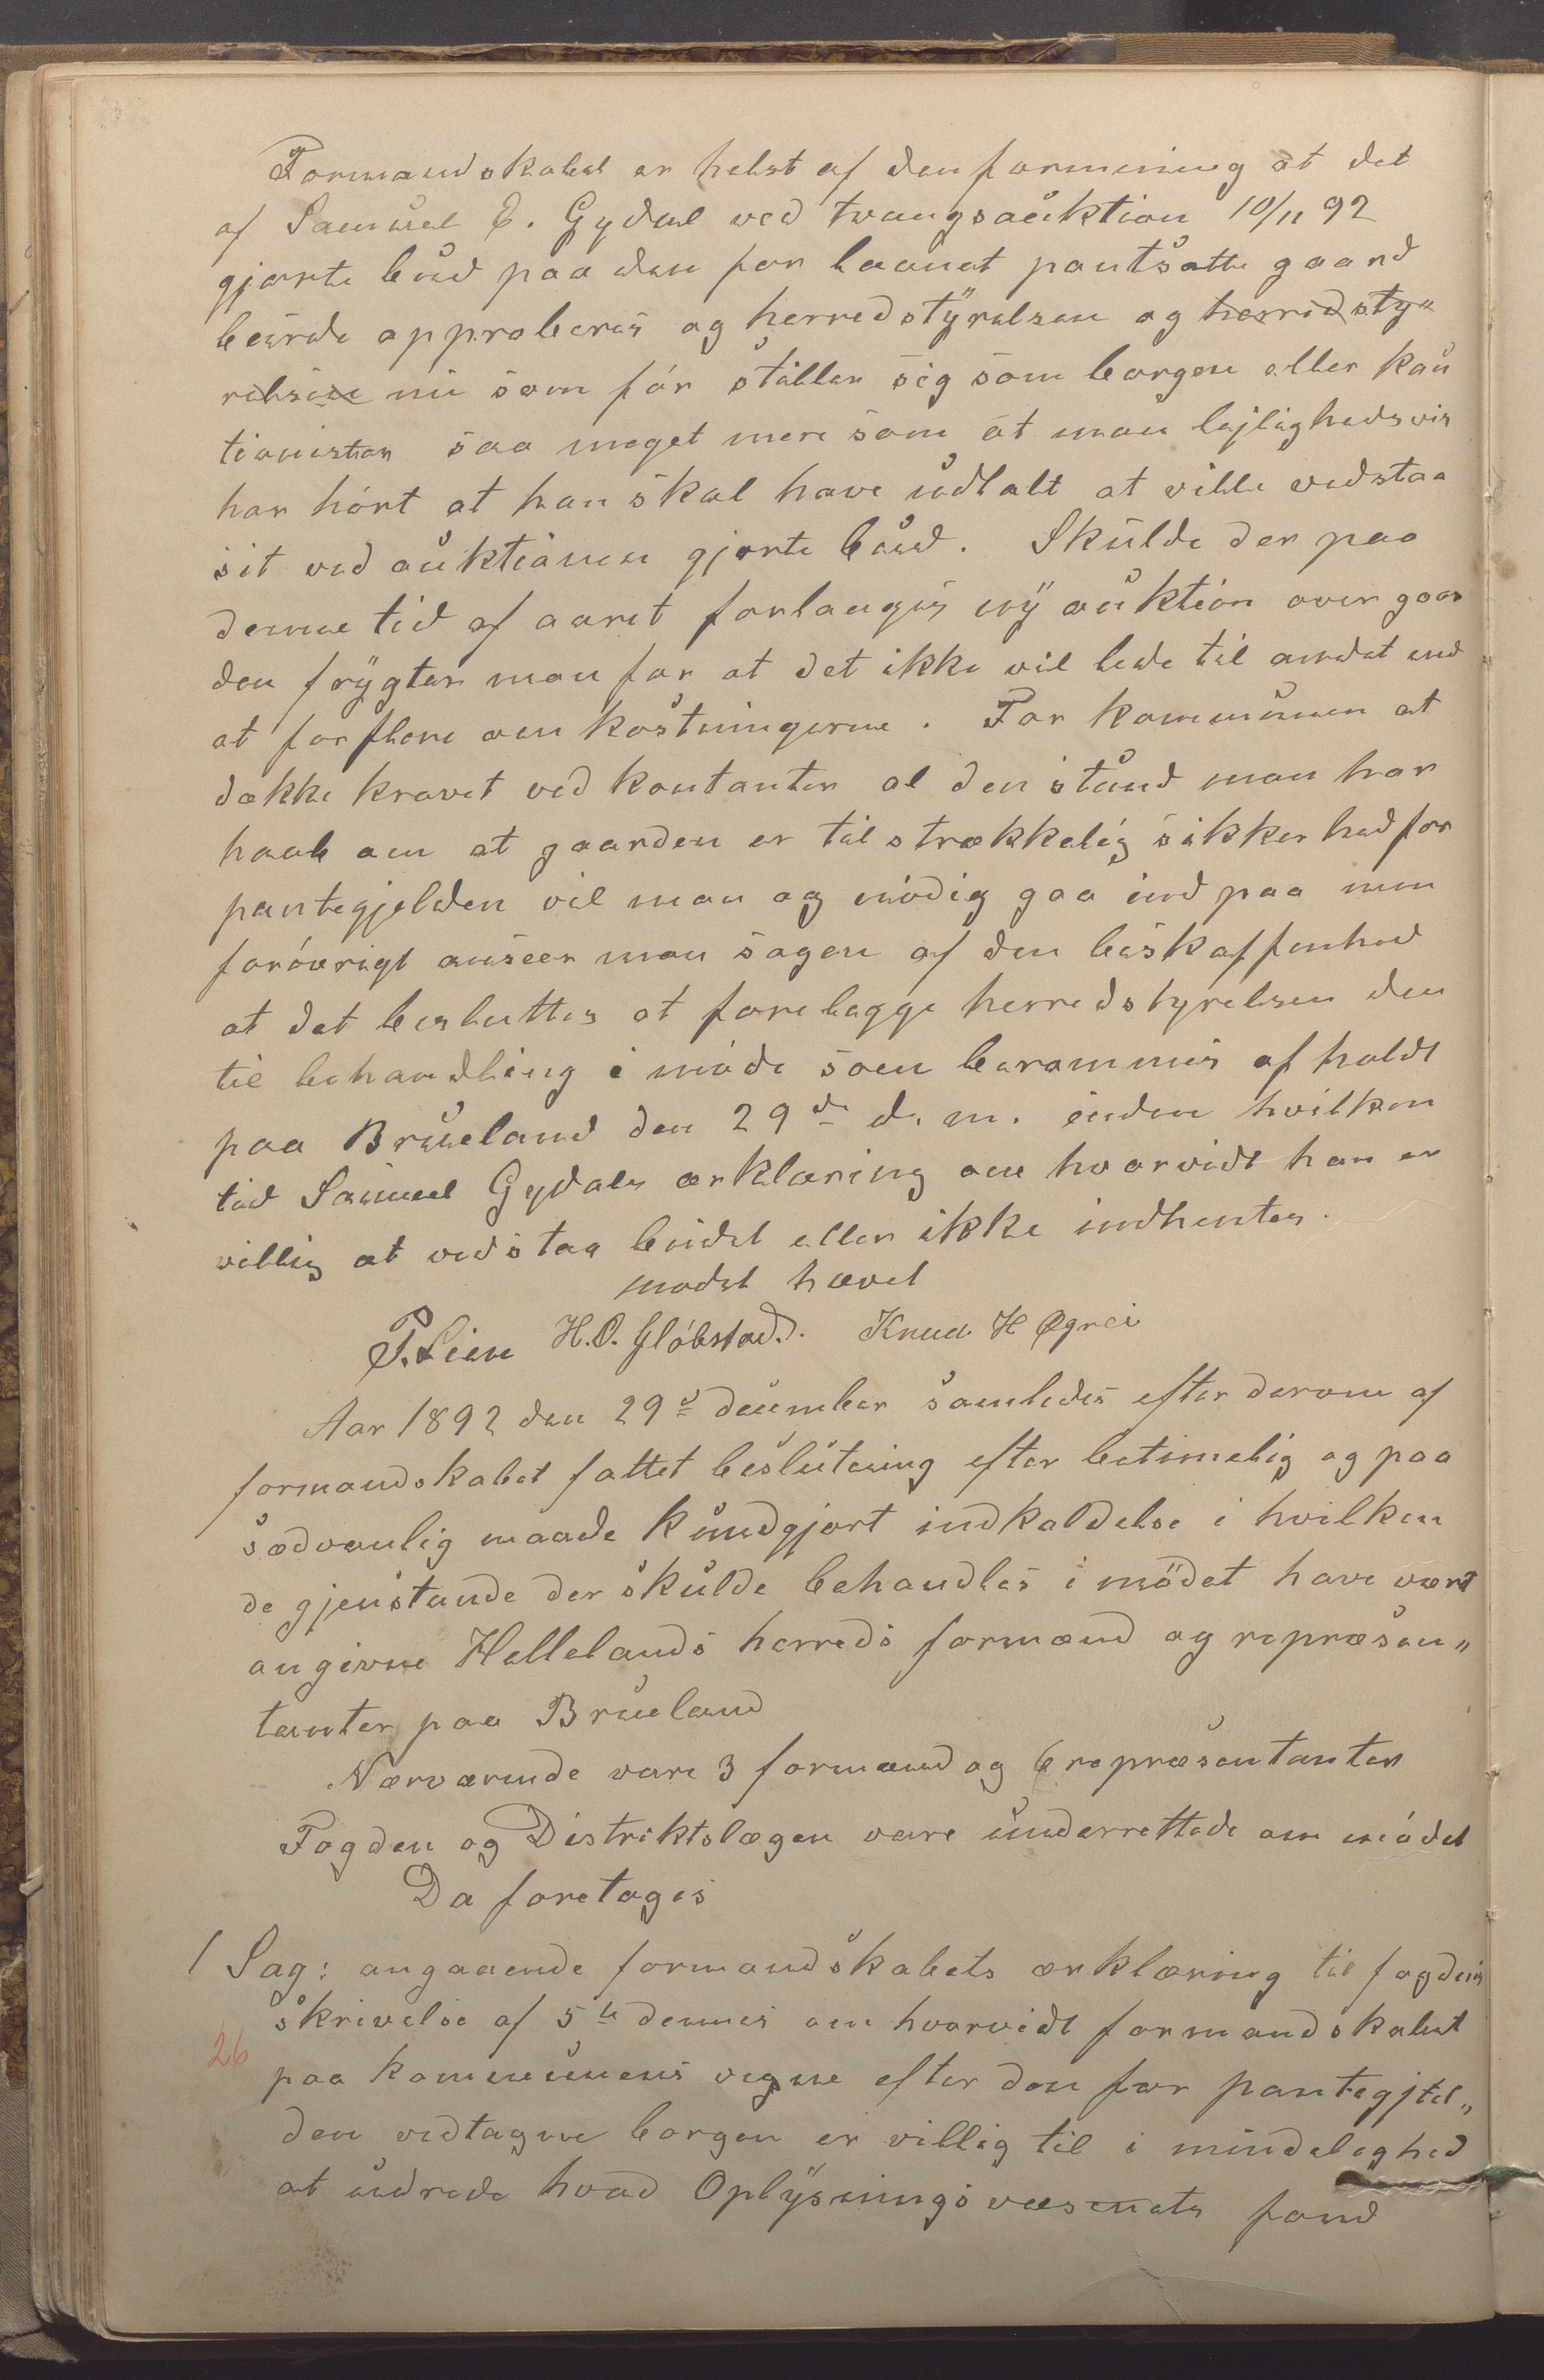 Formandskabet er helst af den formening at det
af Samuel E. Gydal ved tvangsauktion 10/11 92
gjorte bud paa den for laanet pantsatte gaard
burde approberes og herredstyrelsen og herredsty„
relsen nu som før stiller sig som borgen eller kau
tionister saa meget mere som at man lejlighedsvis
har hørt at han skal have udtalt at ville vedstaa
sit ved auktionen gjorte bud. Skulde der paa
denne tid af aaret forlanges ny auktion over gaar
den frygter man for at det ikke vil lede til andet end
at forflere omkostningerne. For kommunen at
dække kravet ved kontanter al den stund man har
haab om at gaarden er tilstrækkelig sikkerhed for
pantegjelden vil man og nødig gaa ind paa men
forøvrigt anseer man sagen af den beskaffenhed
at det besluttes at forelægge herredstyrelsen den
til behandling i møde som berammes afholdt
paa Brueland den 29de d. m. inden hvilken
tid Samuel Gydals erklæring om hvorvidt han er
villig at vedstaa budet eller ikke indhentes.
mødet hævet
P. Lien H. O. Gløbstad. Knud H Øgrei
Aar 1892 den 29de december samledes efter derom af
formandskabet fattet beslutning efter betimelig og paa
sædvanlig maade kundgjort indkaldelse i hvilken
de gjenstande der skulde behandles i mødet have vært
angivne Hellelands herreds formænd og repræsen„
tanter paa Brueland
Nærværende vare 3 formænd og 6 repræsentanter
Fogden og Distriktslægen vare underrettede om mødet
Da foretages
1 Sag: angaaende formandskabets erklæring til fogdens
skrivelse af 5te dennes om hvorvidt formandskabet
26
paa kommunens vegne efter den for pantegjel„
den vedtagne borgen er villig til i mindelighed
at udrede hvad Oplysningsvæsenets fond